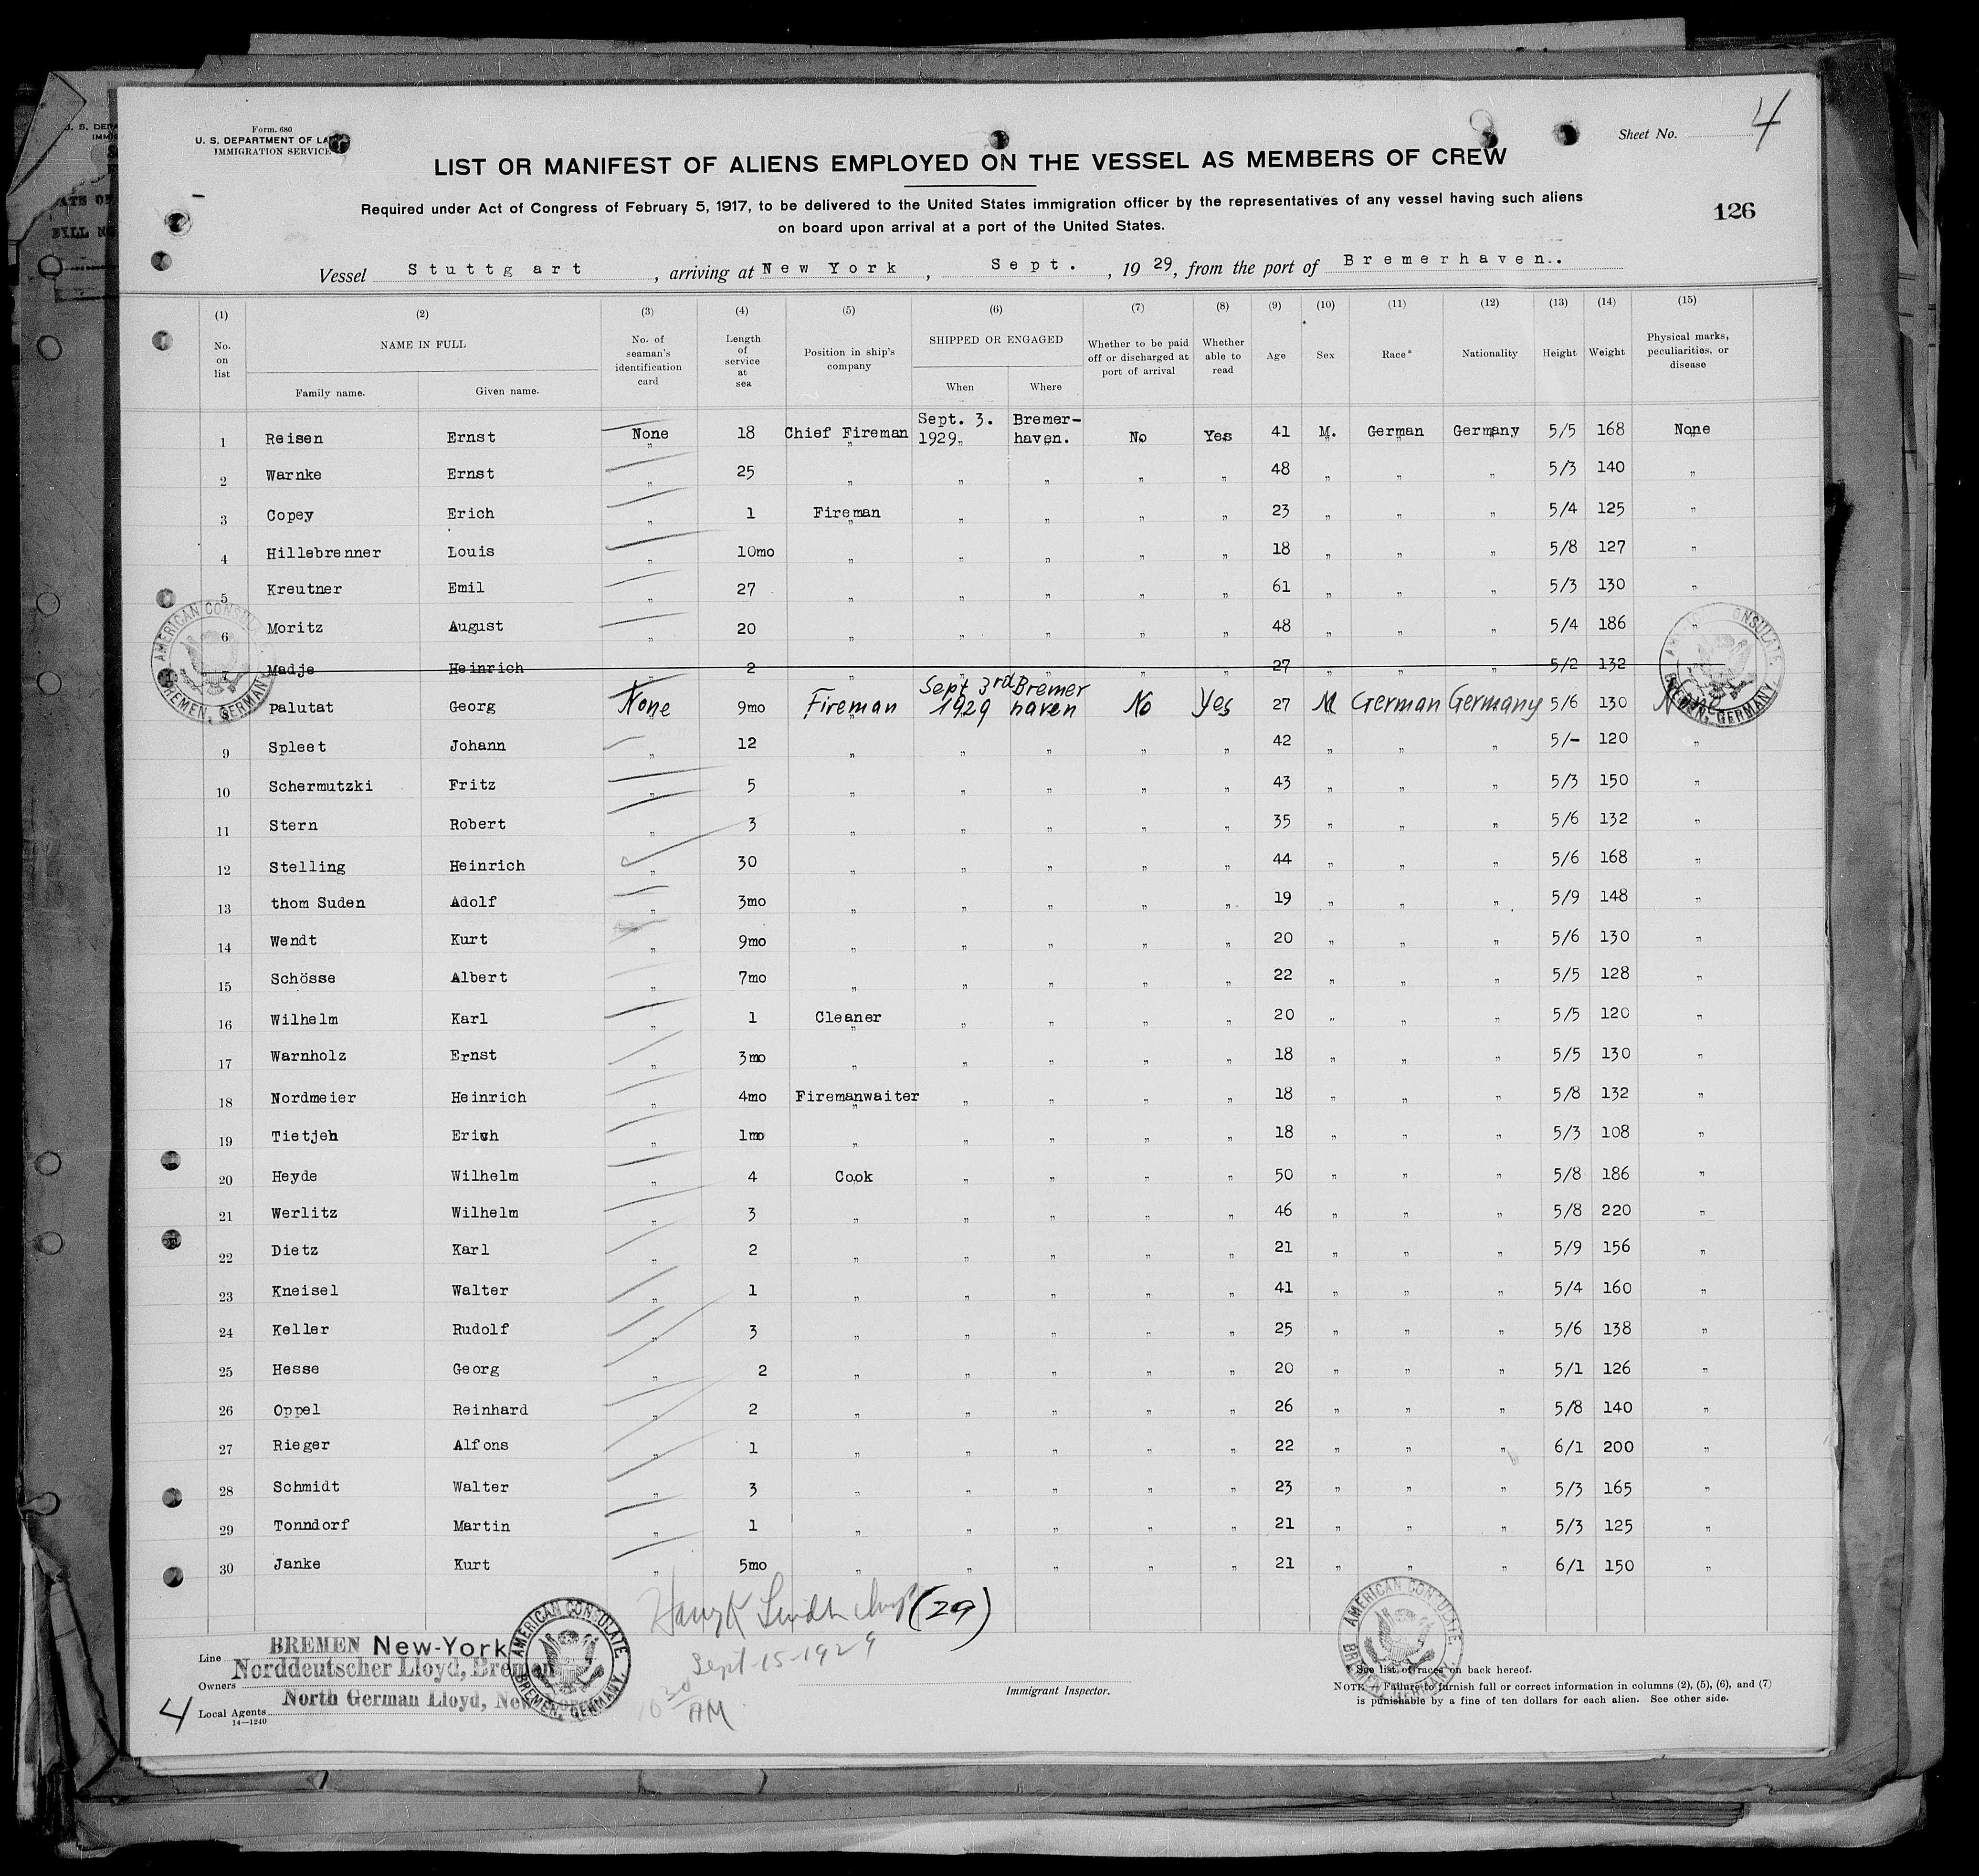 Form. 680
U. S. DEPARTMENT OF LA
IMMIGRATION SERVICE
Sheet No. 4
LIST OR MANIFEST OF ALIENS EMPLOYED ON THE VESSEL AS MEMBERS OF CREW
Required under Act of Congress of February 5, 1917, to be delivered to the United States immigration officer by the representatives of any vessel having such aliens
on board upon arrival at a port of the United States.
126
Vessel Stuttgart, arriving at New York, Sept., 1929, from the port of Bremerhaven..
(1) (2) (3) (4) (5) (6) (7) (8) (9) (10) (11) (12) (13) (14) (15)
No. on list NAME IN FULL Family name. Given name. No. of seaman's identification card Length of service at sea Position in ship's company SHIPPED OR ENGAGED When Where Whether to be paid off or discharged at port of arrival Whether able to read Age Sex Race* Nationality Height Weight Physical marks, peculiarities, or disease
1 Reisen Ernst None 18 Chief Fireman Sept. 3. 1929 Bremer-haven. No Yes 41 M. German Germany 5/5 168 None
2 Warnke Ernst " 25 " " " " " 48 " " " 5/3 140 "
3 Copey Erich " 1 Fireman " " " " 23 " " " 5/4 125 "
4 Hillebrenner Louis " 10mo " " " " " 18 " " " 5/8 127 "
5 Kreutner Emil " 27 " " " " " 61 " " " 5/3 130 "
6 Moritz August " 20 " " " " " 48 " " " 5/4 186 "
7 Madje Heinrich " 2 " " " " " 27 " " " 5/2 132
8 Palutat Georg None 9mo Fireman Sept 3rd 1929 Bremer haven No Yes 27 M German Germany 5/6 130 None
9 Spleet Johann " 12 " " " " " 42 " " " 5/- 120 "
10 Schermutzki Fritz " 5 " " " " " 43 " " " 5/3 150 "
11 Stern Robert " 3 " " " " " 35 " " " 5/6 132 "
12 Stelling Heinrich " 30 " " " " " 44 " " " 5/6 168 "
13 thom Suden Adolf " 3mo " " " " " 19 " " " 5/9 148 "
14 Wendt Kurt " 9mo " " " " " 20 " " " 5/6 130 "
15 Schösse Albert " 7mo " " " " " 22 " " " 5/5 128 "
16 Wilhelm Karl " 1 Cleaner " " " " 20 " " " 5/5 120 "
17 Warnholz Ernst " 3mo " " " " " 18 " " " 5/5 130 "
18 Nordmeier Heinrich " 4mo Firemanwaiter " " " " 18 " " " 5/8 132 "
19 Tietjen Erich " 1mo " " " " " 18 " " " 5/3 108 "
20 Heyde Wilhelm " 4 Cook " " " " 50 " " " 5/8 186 "
21 Werlitz Wilhelm " 3 " " " " " 46 " " " 5/8 220 "
22 Dietz Karl " 2 " " " " " 21 " " " 5/9 156 "
23 Kneisel Walter " 1 " " " " " 41 " " " 5/4 160 "
24 Keller Rudolf " 3 " " " " " 25 " " " 5/6 138 "
25 Hesse Georg " 2 " " " " " 20 " " " 5/1 126 "
26 Oppel Reinhard " 2 " " " " " 26 " " " 5/8 140 "
27 Rieger Alfons " 1 " " " " " 22 " " " 6/1 200 "
28 Schmidt Walter " 3 " " " " " 23 " " " 5/3 165 "
29 Tonndorf Martin " 1 " " " " " 21 " " " 5/3 125 "
30 Janke Kurt " 5mo " " " " " 21 " " " 6/1 150 "
AMERICAN CONSULATE. BREMEN, GERMANY.
(29)
Sept-15-1929
10 30 AM
Line BREMEN New-York
Owners Norddeutscher Lloyd, Bremen
Local Agents North German Lloyd, New
14—1240
4
Immigrant Inspector.
* See list of races on back hereof.
NOTE.—Failure to furnish full or correct information in columns (2), (5), (6), and (7)
is punishable by a fine of ten dollars for each alien. See other side.